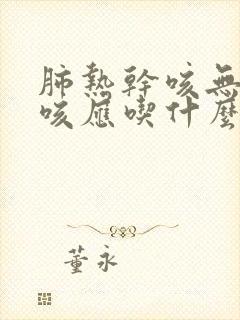 肺熱幹咳無
咳應喫什麼
董永